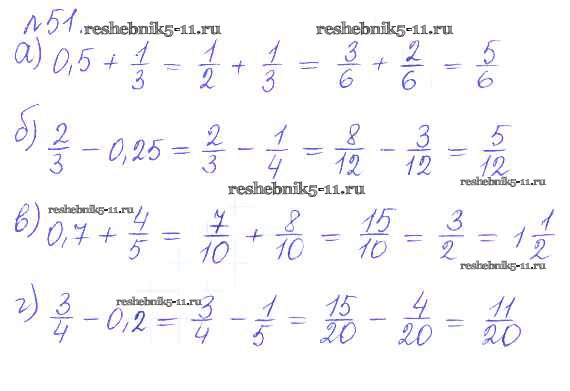 №51. reshebnik5-11.ru reshebnik5-11.ru
а) 0,5 + 1/3 = 1/2 + 1/3 = 3/6 + 2/6 = 5/6
б) 2/3 - 0,25 = 2/3 - 1/4 = 8/12 - 3/12 = 5/12
reshebnik5-11.ru
reshebnik5-11.ru
reshebnik5-11.ru
в) 0,7 + 4/5 = 7/10 + 8/10 = 15/10 = 3/2 = 1 1/2
reshebnik5-11.ru
reshebnik5-11.ru
г) 3/4 - 0,2 = 3/4 - 1/5 = 15/20 - 4/20 = 11/20